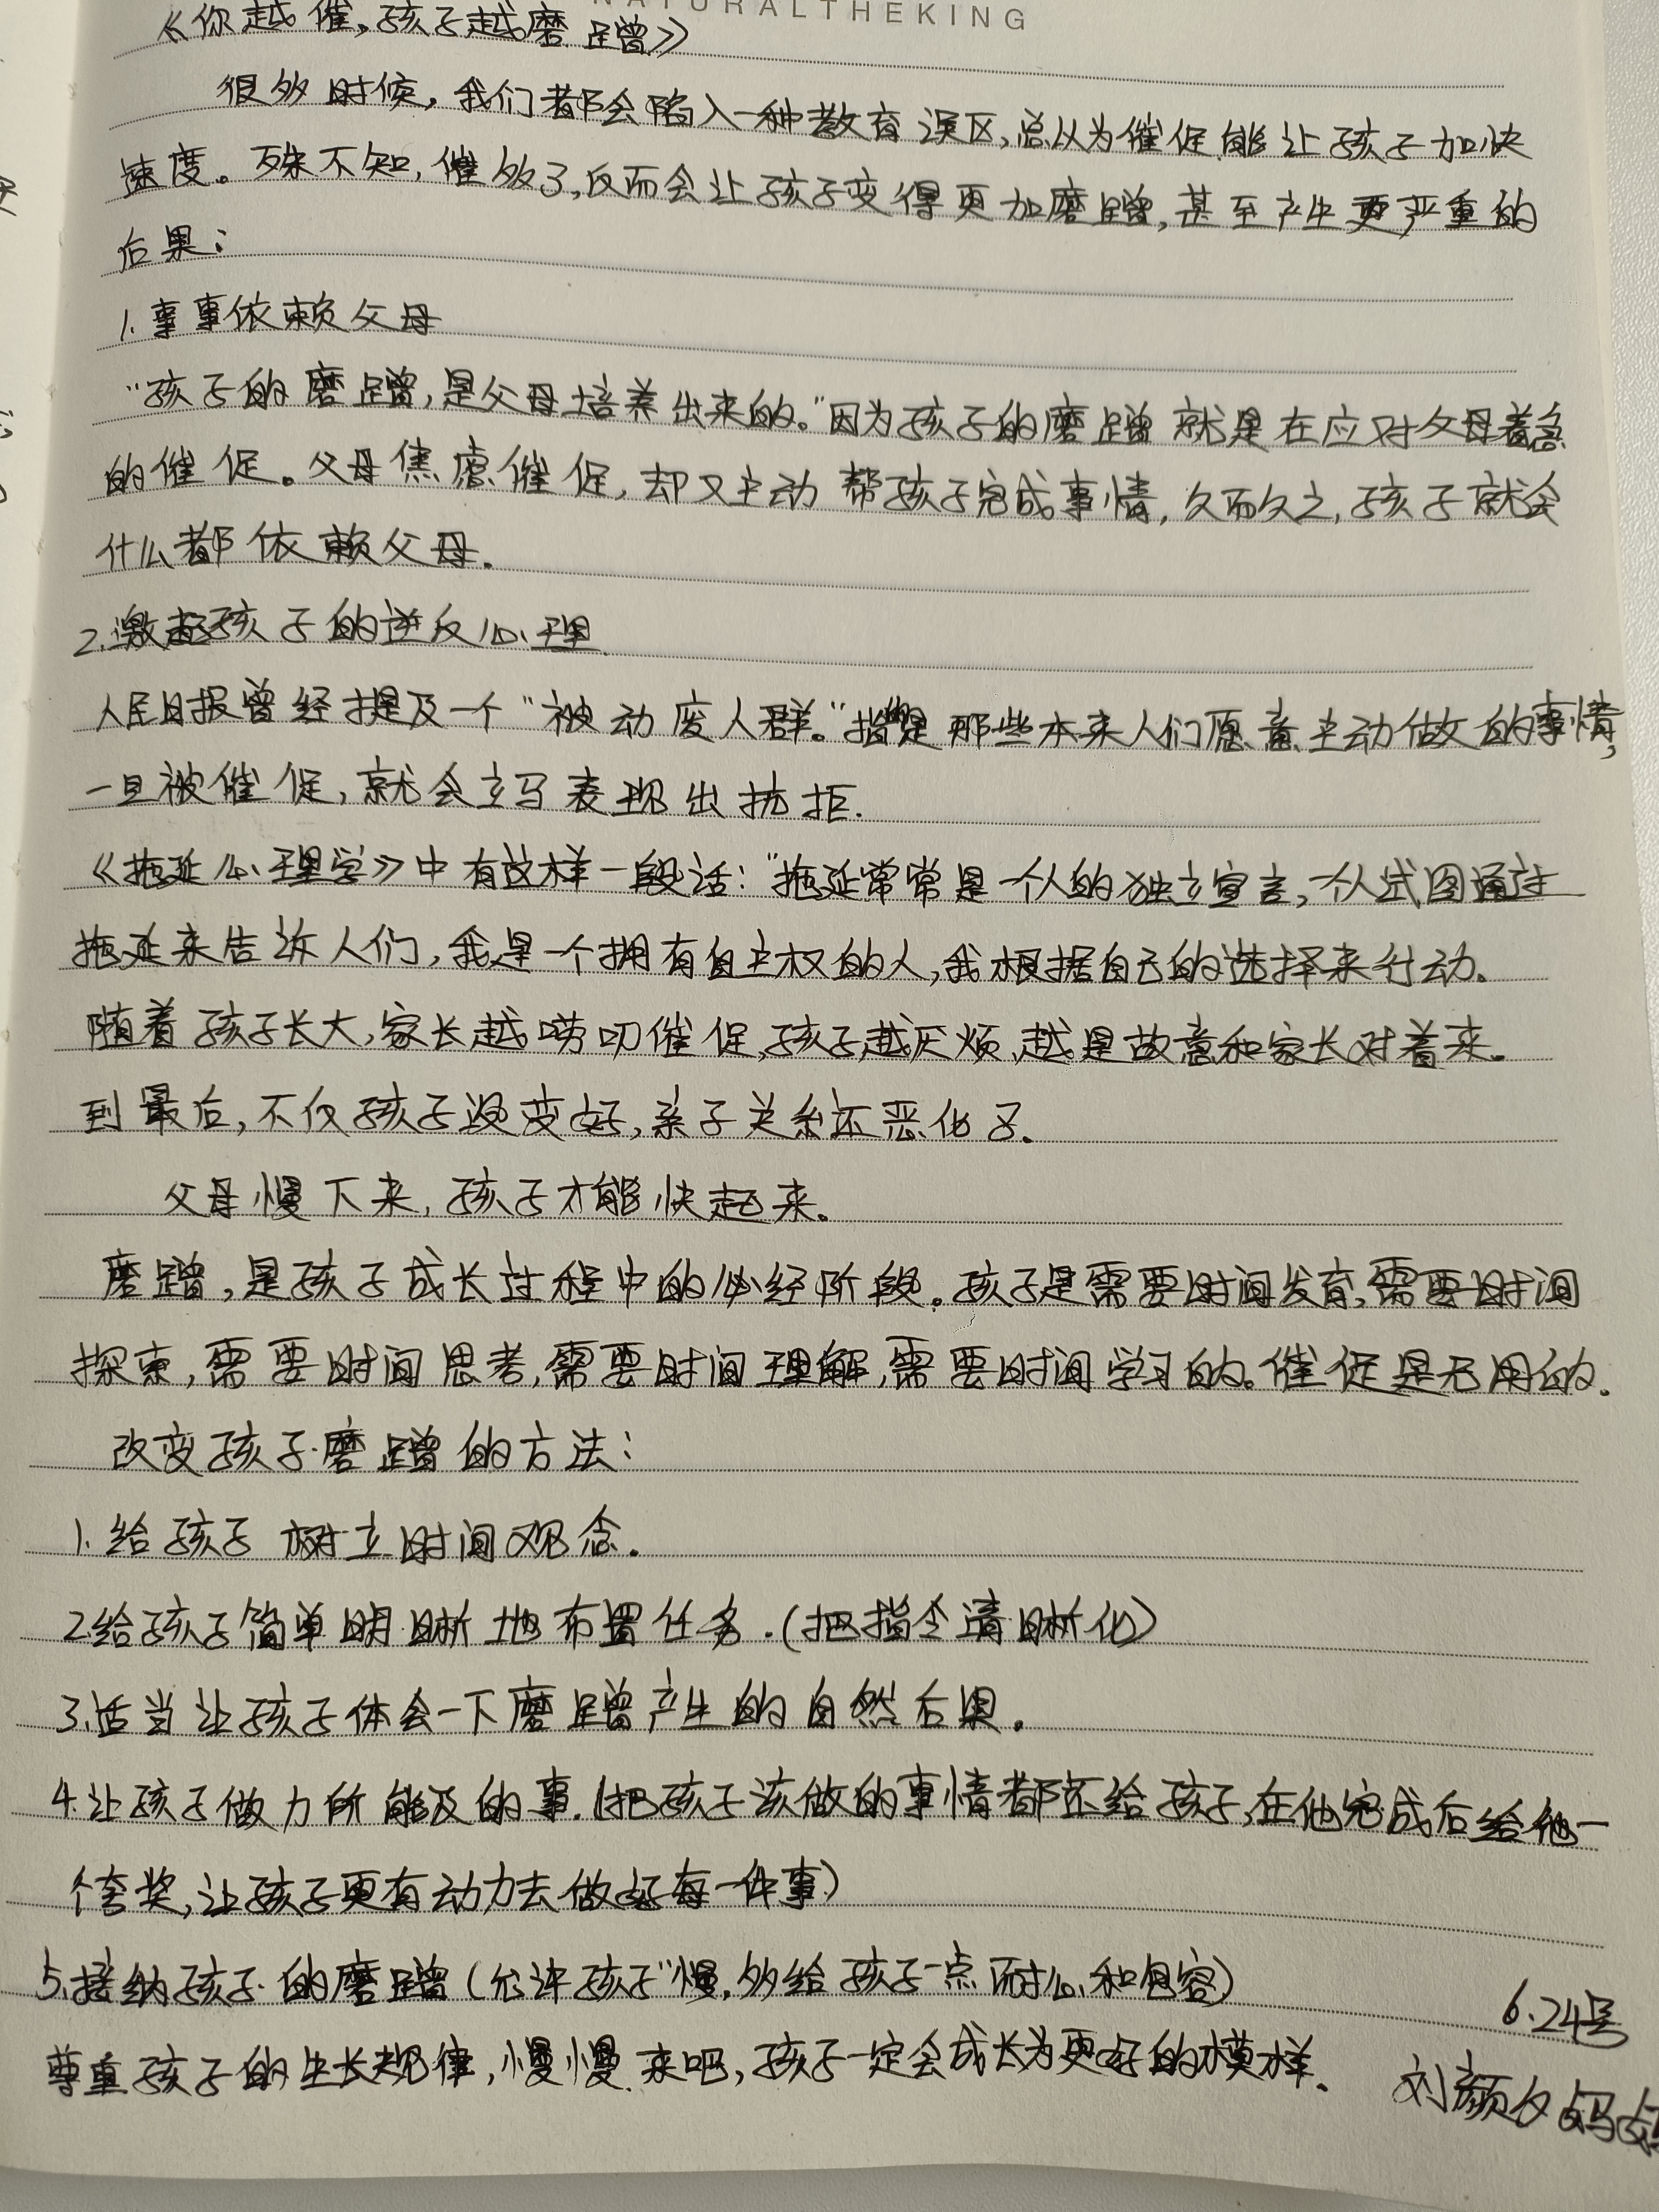 NATURALTHEKING
《你越催,孩子越磨蹭》
很多时候,我们都会陷入一种教育误区,总以为催促能让孩子加快
速度。殊不知,催多了,反而会让孩子变得更加磨蹭,甚至产生更严重的
后果:
1.事事依赖父母
"孩子的磨蹭,是父母培养出来的。"因为孩子的磨蹭就是在应对父母着急
的催促。父母焦虑催促,却又主动帮孩子完成事情,久而久之,孩子就会
什么都依赖父母.
2.激起孩子的逆反心理
人民日报曾经提及一个"被动废人群。"指是那些本来人们愿意主动做的事情,
一旦被催促,就会立马表现出抗拒.
《拖延心理学》中有这样一段话:"拖延常常是一个人的独立宣言,一个人试图通过
拖延来告诉人们,我是一个拥有自主权的人,我根据自己的选择来行动。
随着孩子长大,家长越唠叨催促,孩子越厌烦,越是故意和家长对着来。
到最后,不仅孩子没变好,亲子关系还恶化了.
父母慢下来,孩子才能快起来。
磨蹭,是孩子成长过程中的必经阶段。孩子是需要时间发育,需要时间
探索,需要时间思考,需要时间理解,需要时间学习的。催促是无用的.
改变孩子磨蹭的方法:
1.给孩子树立时间观念.
2.给孩子简单明晰地布置任务.(把指令清晰化)
3.适当让孩子体会一下磨蹭产生的自然后果.
4.让孩子做力所能及的事.(把孩子该做的事情都还给孩子,在他完成后给他一
个夸奖,让孩子更有动力去做好每一件事)
5.接纳孩子的磨蹭(允许孩子"慢,多给孩子一点耐心和包容)
6.24号
尊重孩子的生长规律,慢慢来吧,孩子一定会成长为更好的模样.
刘颜夕妈妈